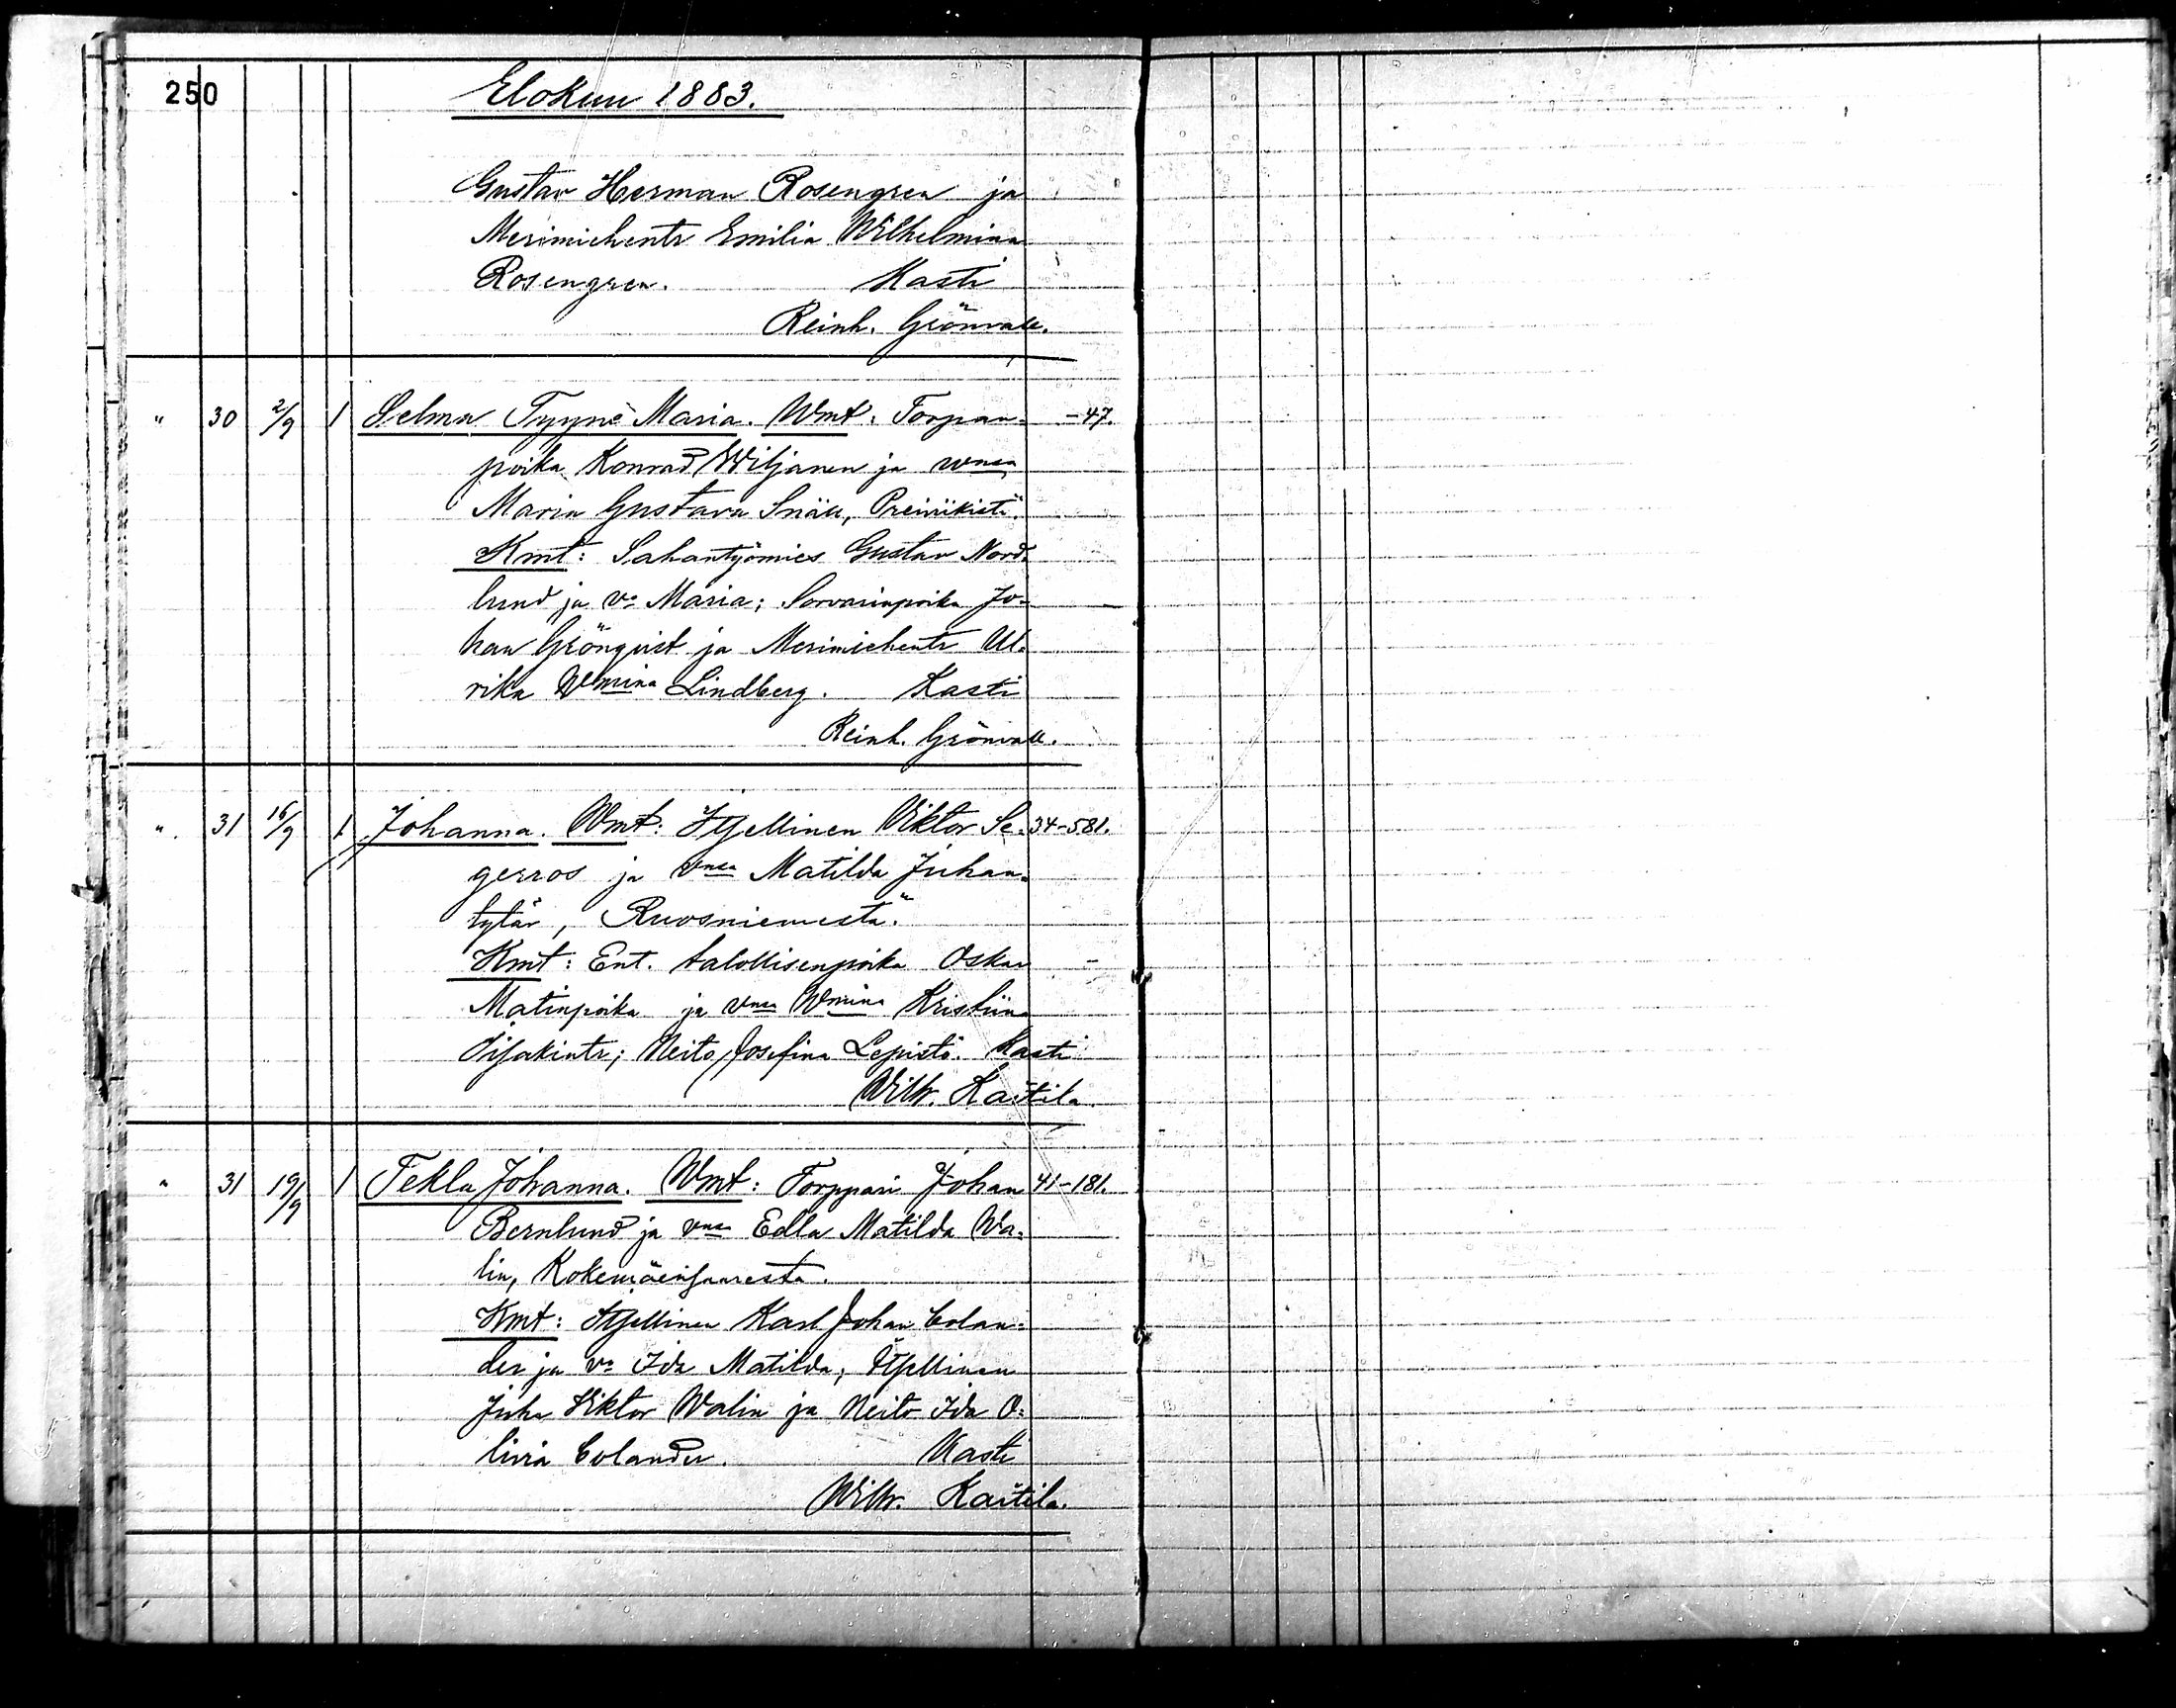 250
Elokuu 1883.
Gustav Herman Rosengren ja
Merimiehentr Emilia Wilhelmina
Rosengren. Kasti
Reinh. Grönvall.
" 30 2/9 1 Selma Tyyne Maria. Wmt. Torpan- -47.
poika Konrad Wiljanen ja vmsa
Maria Gustava Snäll, Preiviikistä.
Kmt: Sahantyömies Gustav Nord-
lund ja vo Maria; Sorvarinpoika Jo-
han Grönqvist ja Merimiehentr Ul-
rika Wmina Lindberg. Kasti
Reinh. Grönvall.
" 31 16/9 1 Johanna. Wmt: Itsellinen Viktor Se- 34-581.
gerros ja vmsa Matilda Juhan-
tytär, Ruosniemestä.
Kmt: Ent. talollisenpoika Oskar
Matinpoika ja vmsa Wmina Kristiina
Iisakintr; Neito Josefina Lepistö. Kasti
Wilh. Kaitila.
" 31 19/9 1 Tekla Johanna. Wmt: Torppari Johan 41-181.
Bernlund ja vmsa Edla Matilda Wa-
lin, Kokemäensaaresta.
Kmt: Itsellinen Karl Johan Colan-
der ja vo Ida Matilda; Itsellinen
Juha Viktor Walin ja Neito Ida O-
livia Colander. Kasti
Wilh. Kaitila.